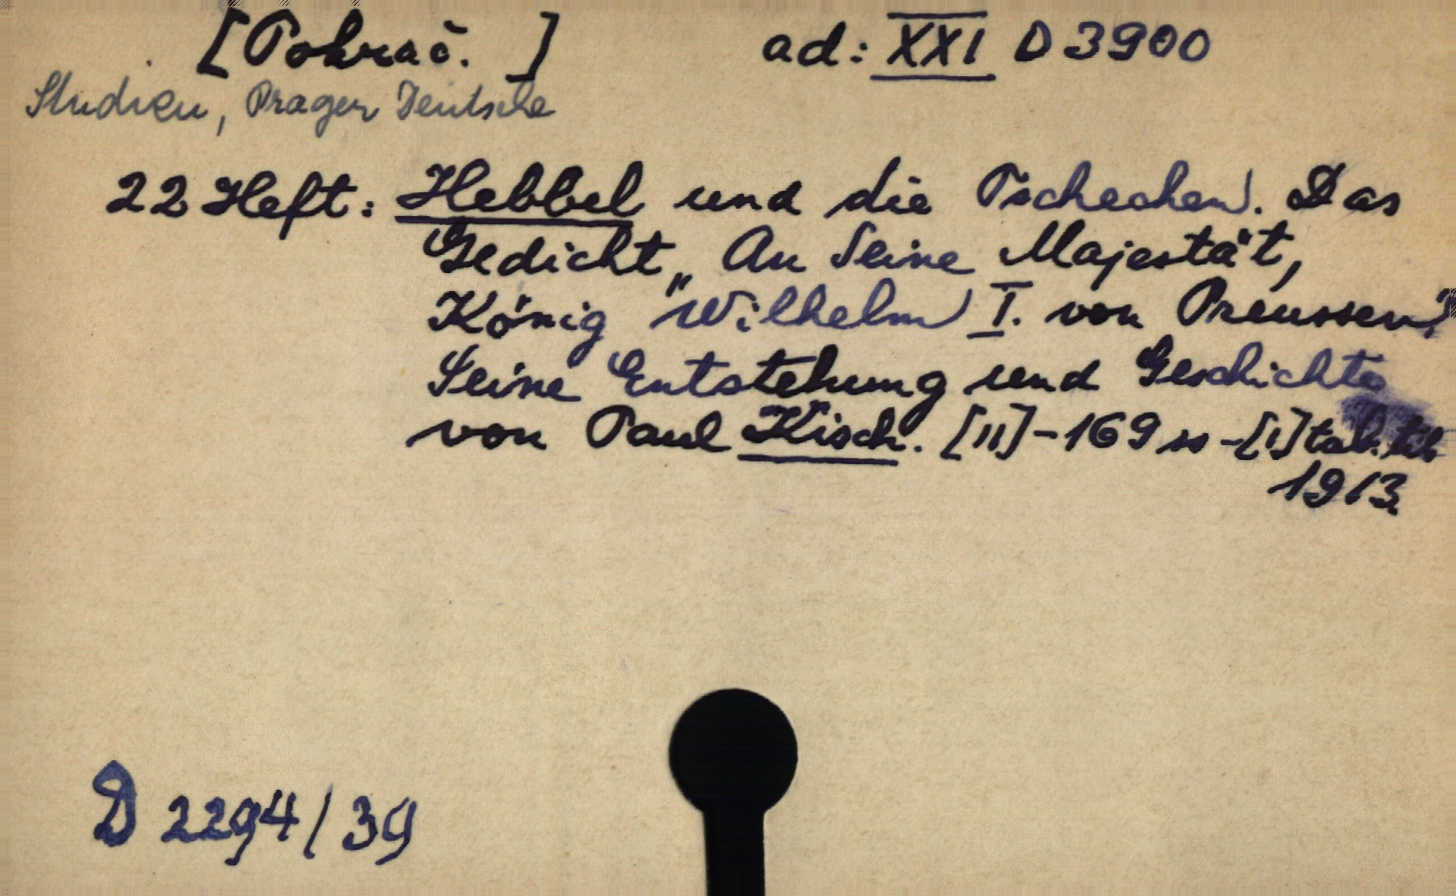 [Pokrač. ] ad: XXI D 3900
Studien, Prager Deutsche
22 Heft: Hebbel und die Tschechen. Das
Gedicht „An Seine Majestät,
König Wilhelm I. von Preussen".
Seine Entstehung und Geschichte
von Paul Kisch. [II]-169 ss -[I] tab.
1913.
D 2294/39